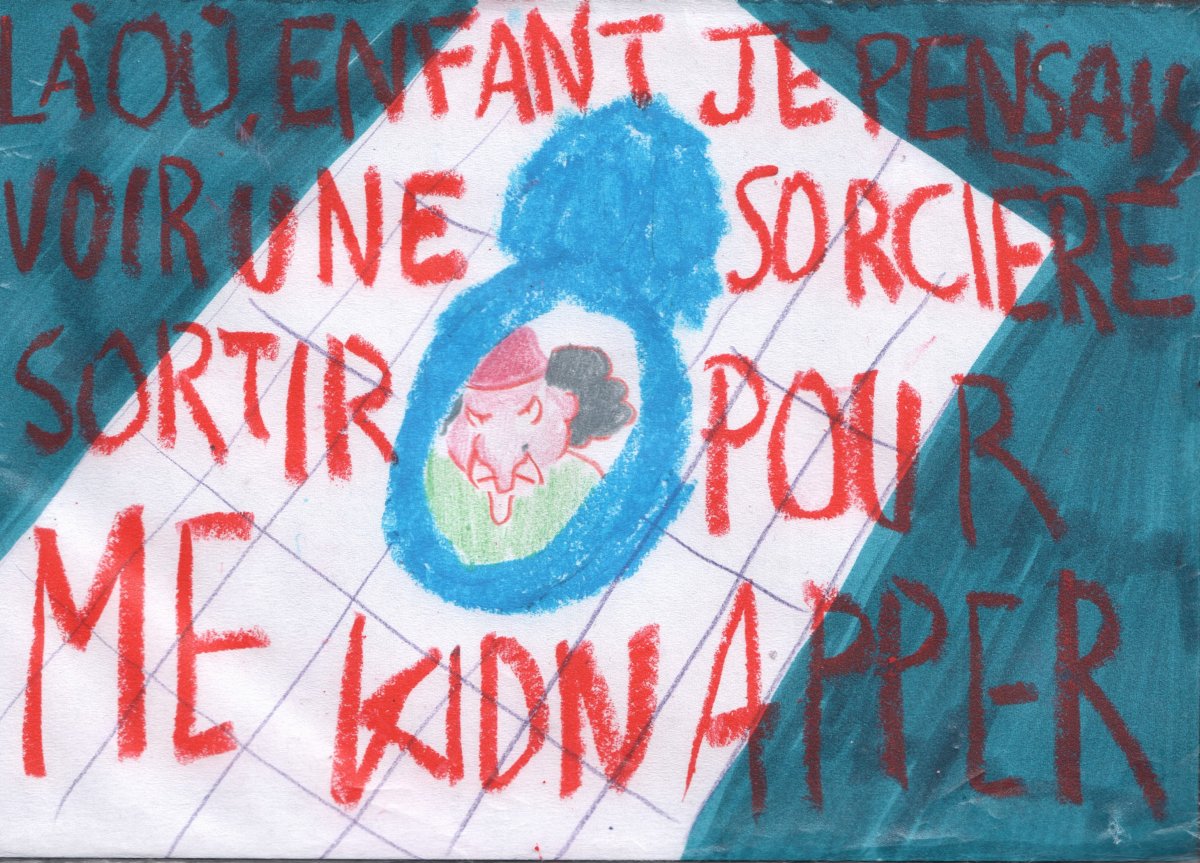 LÀ OÙ, ENFANT JE PENSAIS
VOIR UNE SORCIÈRE
SORTIR POUR
ME KIDNAPPER